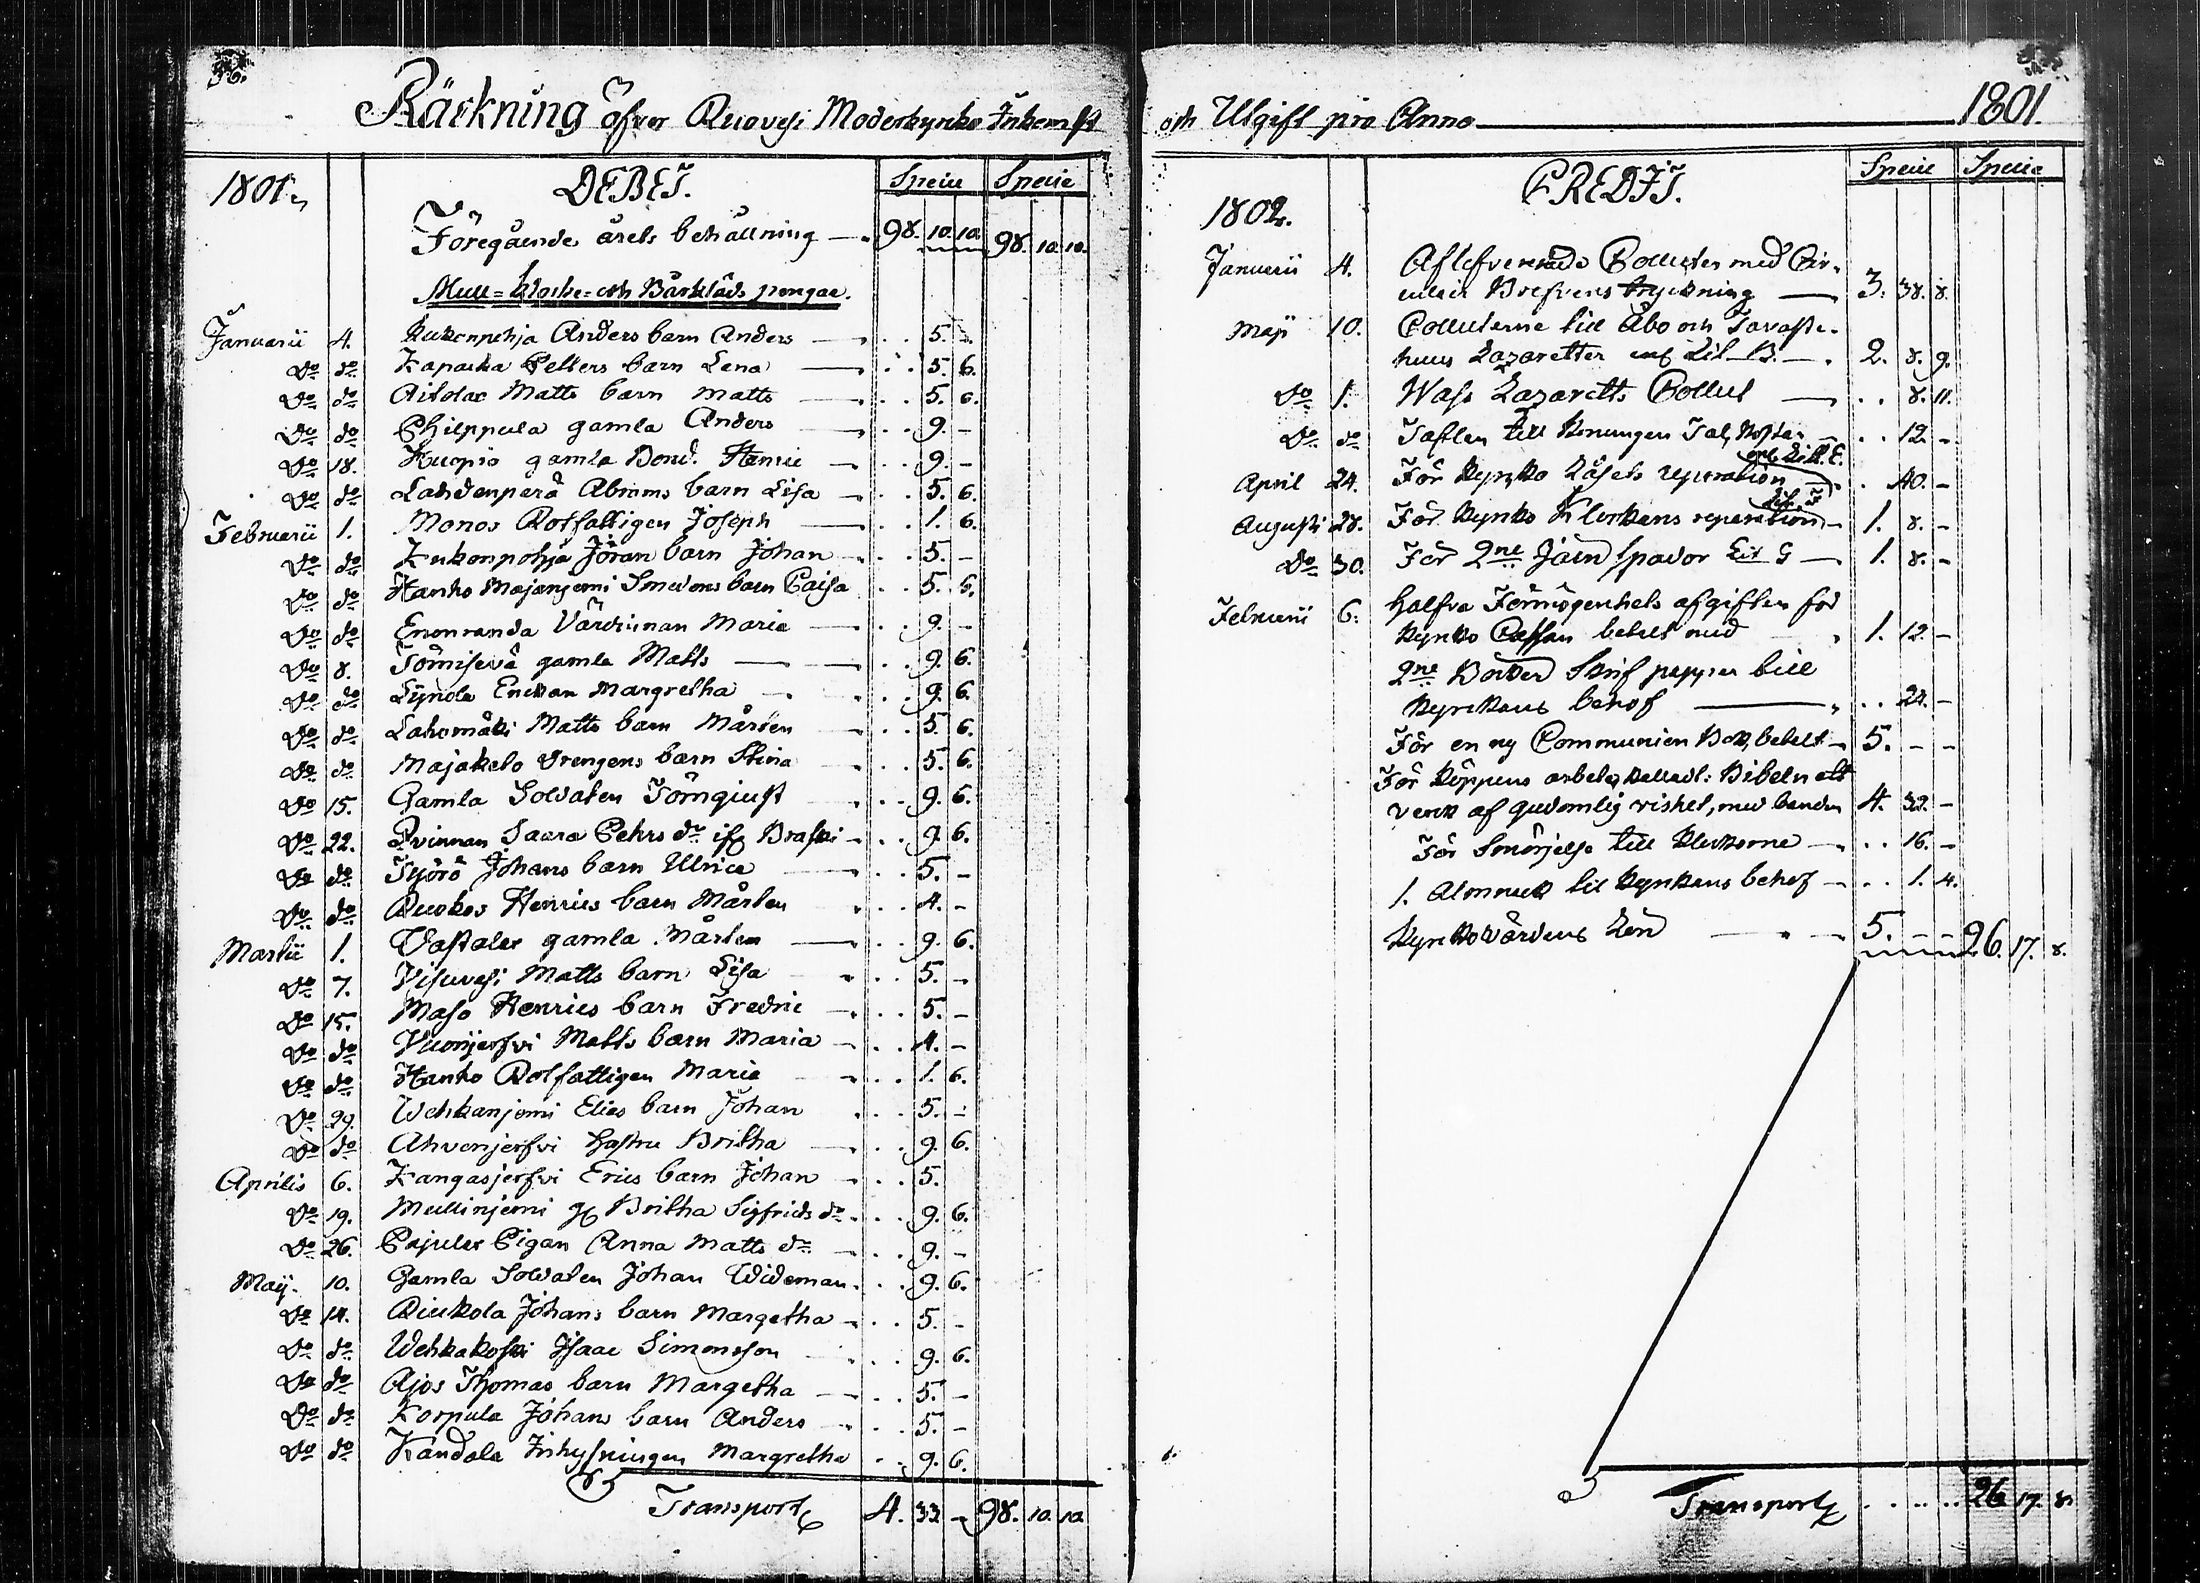 Räckning öfver Ruovesi Moderkyrko Inkomst
1801.
DEBET. Specie Specie
Föregående årets behållning — 98. 10. 10. 98. 10. 10.
Mull- Klocke- och Bårkläds pengar.
Januarii 4. Kukonpohja Anders barn Anders — . . 5. -
Do do Kaparka Petters barn Lena — . . 5. 6.
Do do Aitolax Matts barn Matts — . . 5. 6.
Do do Philppula gamla Anders — . . 9. -
Do 18. Kuopio gamla Bond. Henric — . . 9. -
Do do Lahdenperä Abrams barn Lisa — . . 5. 6.
Februarii 1. Monos Rotfattigen Joseph — . . 1. 6.
Do do Kukonpohja Jöran barn Johan — . . 5. -
Do do Hanho Majanjemi Smedens barn Caisa . . 5. 6.
Do do Enonranda Värdinnan Maria — . . 9. -
Do 8. Tömisevä gamla Matts — . . 9. 6.
Do do Lynola Enckan Margretha — . . 9. 6.
Do do Lahomäki Matts barn Mårten — . . 5. 6.
Do do Majakelo Drengens barn Stina — . . 5. 6.
Do 15. Gamla Soldaten Törnquist . . 9. 6.
Do 22. Qvinnan Saara Pehrs dr if Braski — . . 9. 6.
Do do Työrö Johans barn Ulrica — . . 5. -
Do do Ruokos Henrics barn Mårten . . 4. -
Martii 1. Vastalax gamla Mårten — . . 9. 6.
Do 7. Visuvesi Matts barn Lisa . . 5. -
Do 15. Maso Henrics barn Fredric — . . 5. -
Do do Vuorijerfvi Matts barn Maria — . . 4. -
Do do Hanho Rotfattigen Maria . . 1. 6.
Do 29. Wehkanjemi Elias barn Johan . . 5. -
Do do Ahvenjerfvi Hustru Britha — . . 9. 6.
Aprilis 6. Kangasjerfvi Erics barn Johan — . . 5.
Do 19. Mullinjemi Britha Sigfrids dr . . 9. 6.
Do 26. Pajulax Pigan Anna Matts dr — . . 9. -
Maij. 10. Gamla Soldaten Johan Wideman . . 9. 6.
Do 14. Riuttola Johans barn Margetha — . . 5. -
Do do Wehkakoski Isaac Simonsson . . 9. 6.
Do do Ajos Thomas barn Margetha — . . 5. -
Do do Korpula Johans barn Anders . . 5. -
Do do Kandola Inhysningen Margretha . . 9. 6.
Transport 4. 33 - 98. 10. 10.
och Utgift pro Anno — 1801.
CREDIT. Specie Specie
1802.
Januarii 4. Aflefvererade Collecter med Cir-
culair Brefvens tryckning — 3. 38. 8.
Maji 10. Collecterne till Åbo och Tavaste-
huus Lazaretter enl. Lit. B. — 2. 8. 9.
Do 1. Wasa Lazaretts Collect — . . 8. 11.
Do do Taflan till Konungen Tal, kostar — . . 12. -
enl. Litt. E.
April 24. För kyrko Låsets reparation . . 40. -
Lit. F
Augusti 28. För kyrko Klockans reparation — 1. 8. -
Do 30. För 2ne Järn Spador Lit G — 1. 8. -
Februarii 6. Halfva Förmögenhets afgiften för
kyrko Cassan betalt med 1. 12. -
2ne Böcker Skrif papper till
kyrckans behof — . . 24. -
För en ny Communion Bok, betalt — 5. - -
För Köppens arbete, kallad: Bibeln ett
verck af gudomlig vishet, med banden 4. 32. -
För Smörjelse till Klockorne — . . 16. -
1. Almnack til kyrckans behof — . . 1. 4.
Kyrckovärdens Lön — 5. - - 26. 17. 8.
Transport . . . . . 26 17. 8.